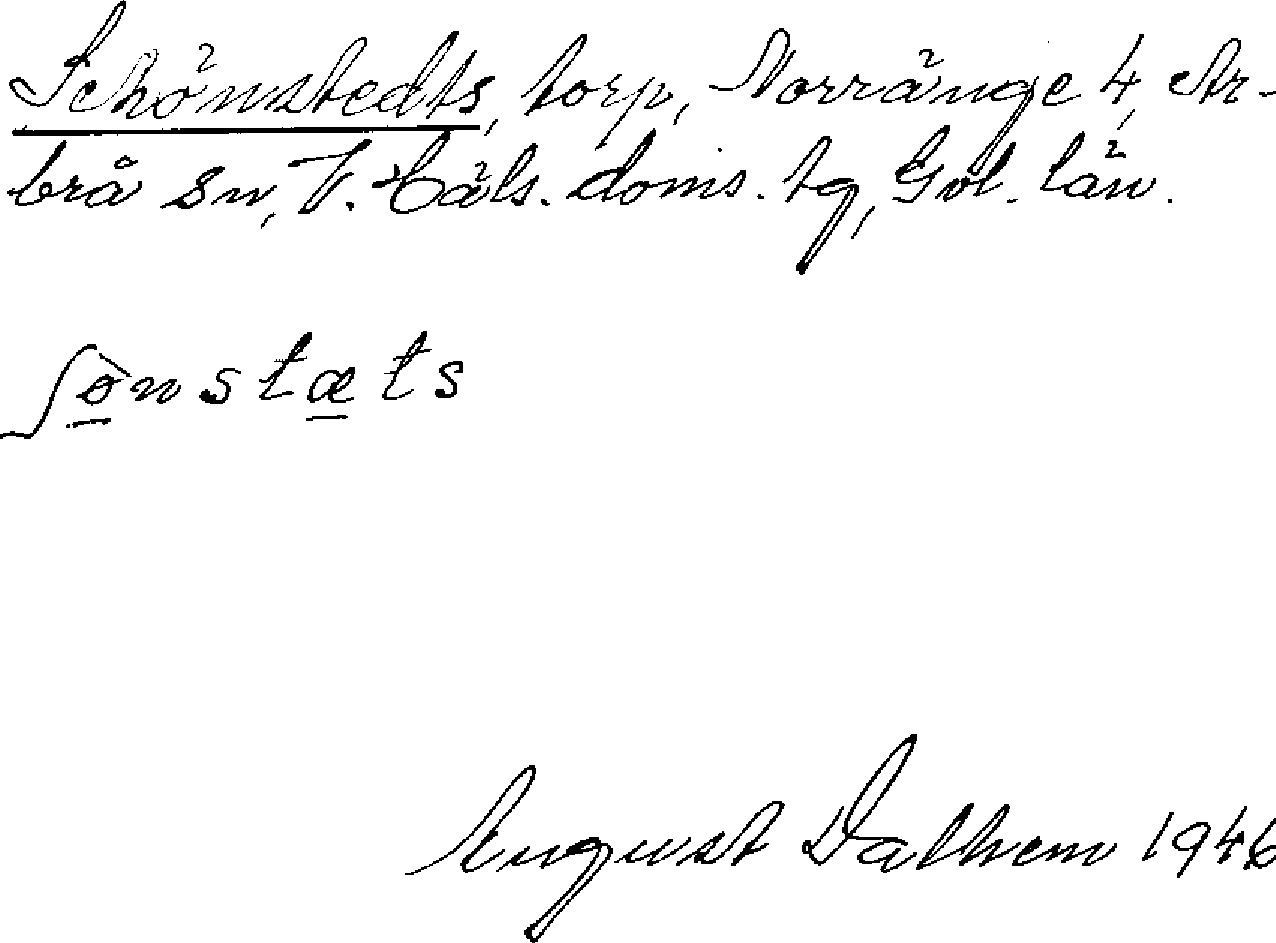 Schönstedts, torp, Norränge 4, Ar-
brå sn, V. Häls. doms. tg, Gvl. län.
ʃönstæts
August Dalhem 1946